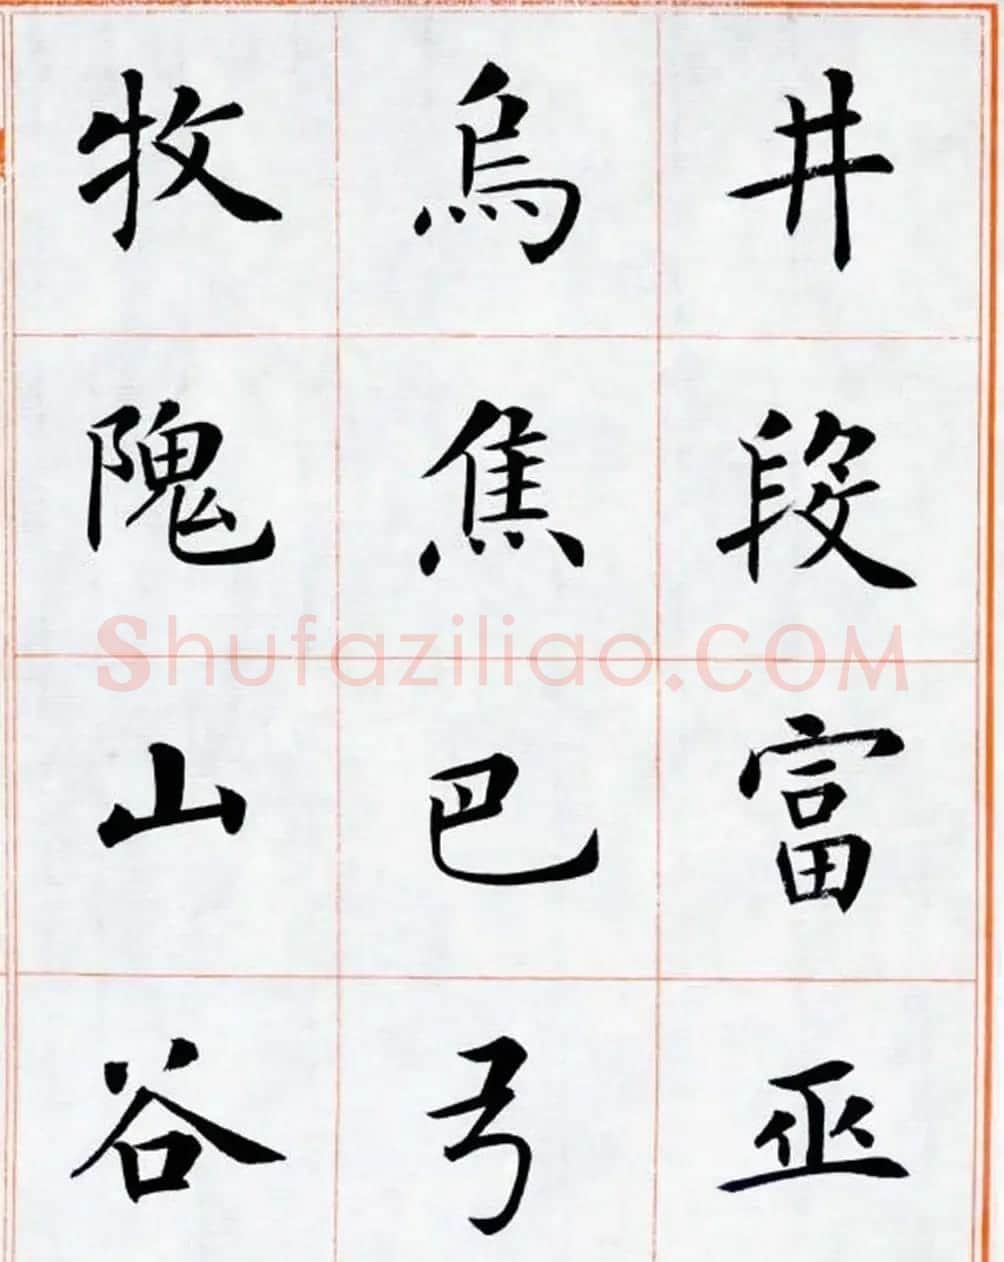 井段富巫
烏焦巴弓
牧隗山谷
Shufaziliao.COM